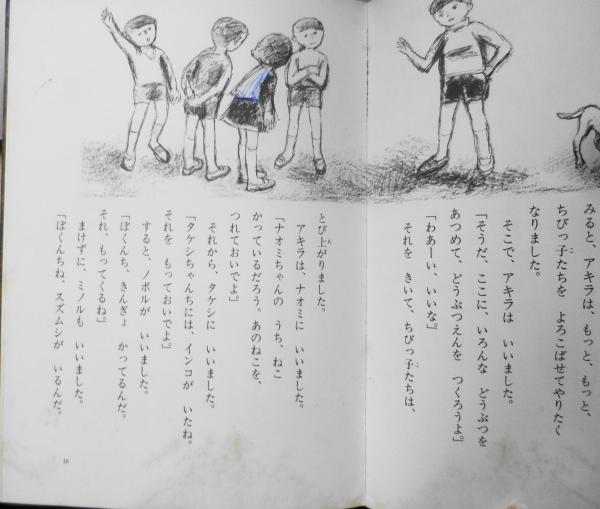 みると、アキラは、もっと、もっと、
ちびっ子たちを　よろこばせてやりたく
なりました。
そこで、アキラは　いいました。
「そうだ、ここに、いろんな　どうぶつを
あつめて、どうぶつえんを　つくろうよ。」
「わあーい、いいな。」
それを　きいて、ちびっ子たちは、
とび上がりました。
アキラは、ナオミに　いいました。
「ナオミちゃんの　うち、ねこ
かっているだろう。あのねこを、
つれておいでよ。」
それから、タケシに　いいました。
「タケシちゃんちには、インコが　いたね。
それを　もっておいでよ。」
すると、ノボルが　いいました。
「ぼくんち、きんぎょ　かってるんだ。
それ、もってくるね。」
まけずに、ミノルも　いいました。
「ぼくんちね、スズムシが　いるんだ。
19